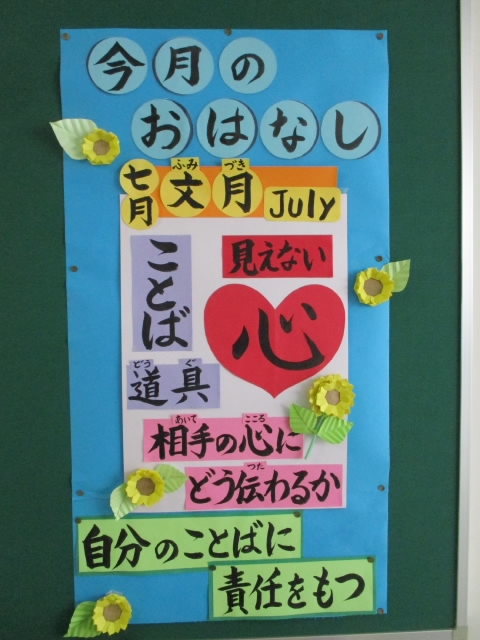 今月の
おはなし
七月 文月 July
ふみ づき
ことば
見えない
心
どう ぐ
道具
あいて こころ
相手の心に
つた
どう伝わるか
自分のことばに
責任をもつ